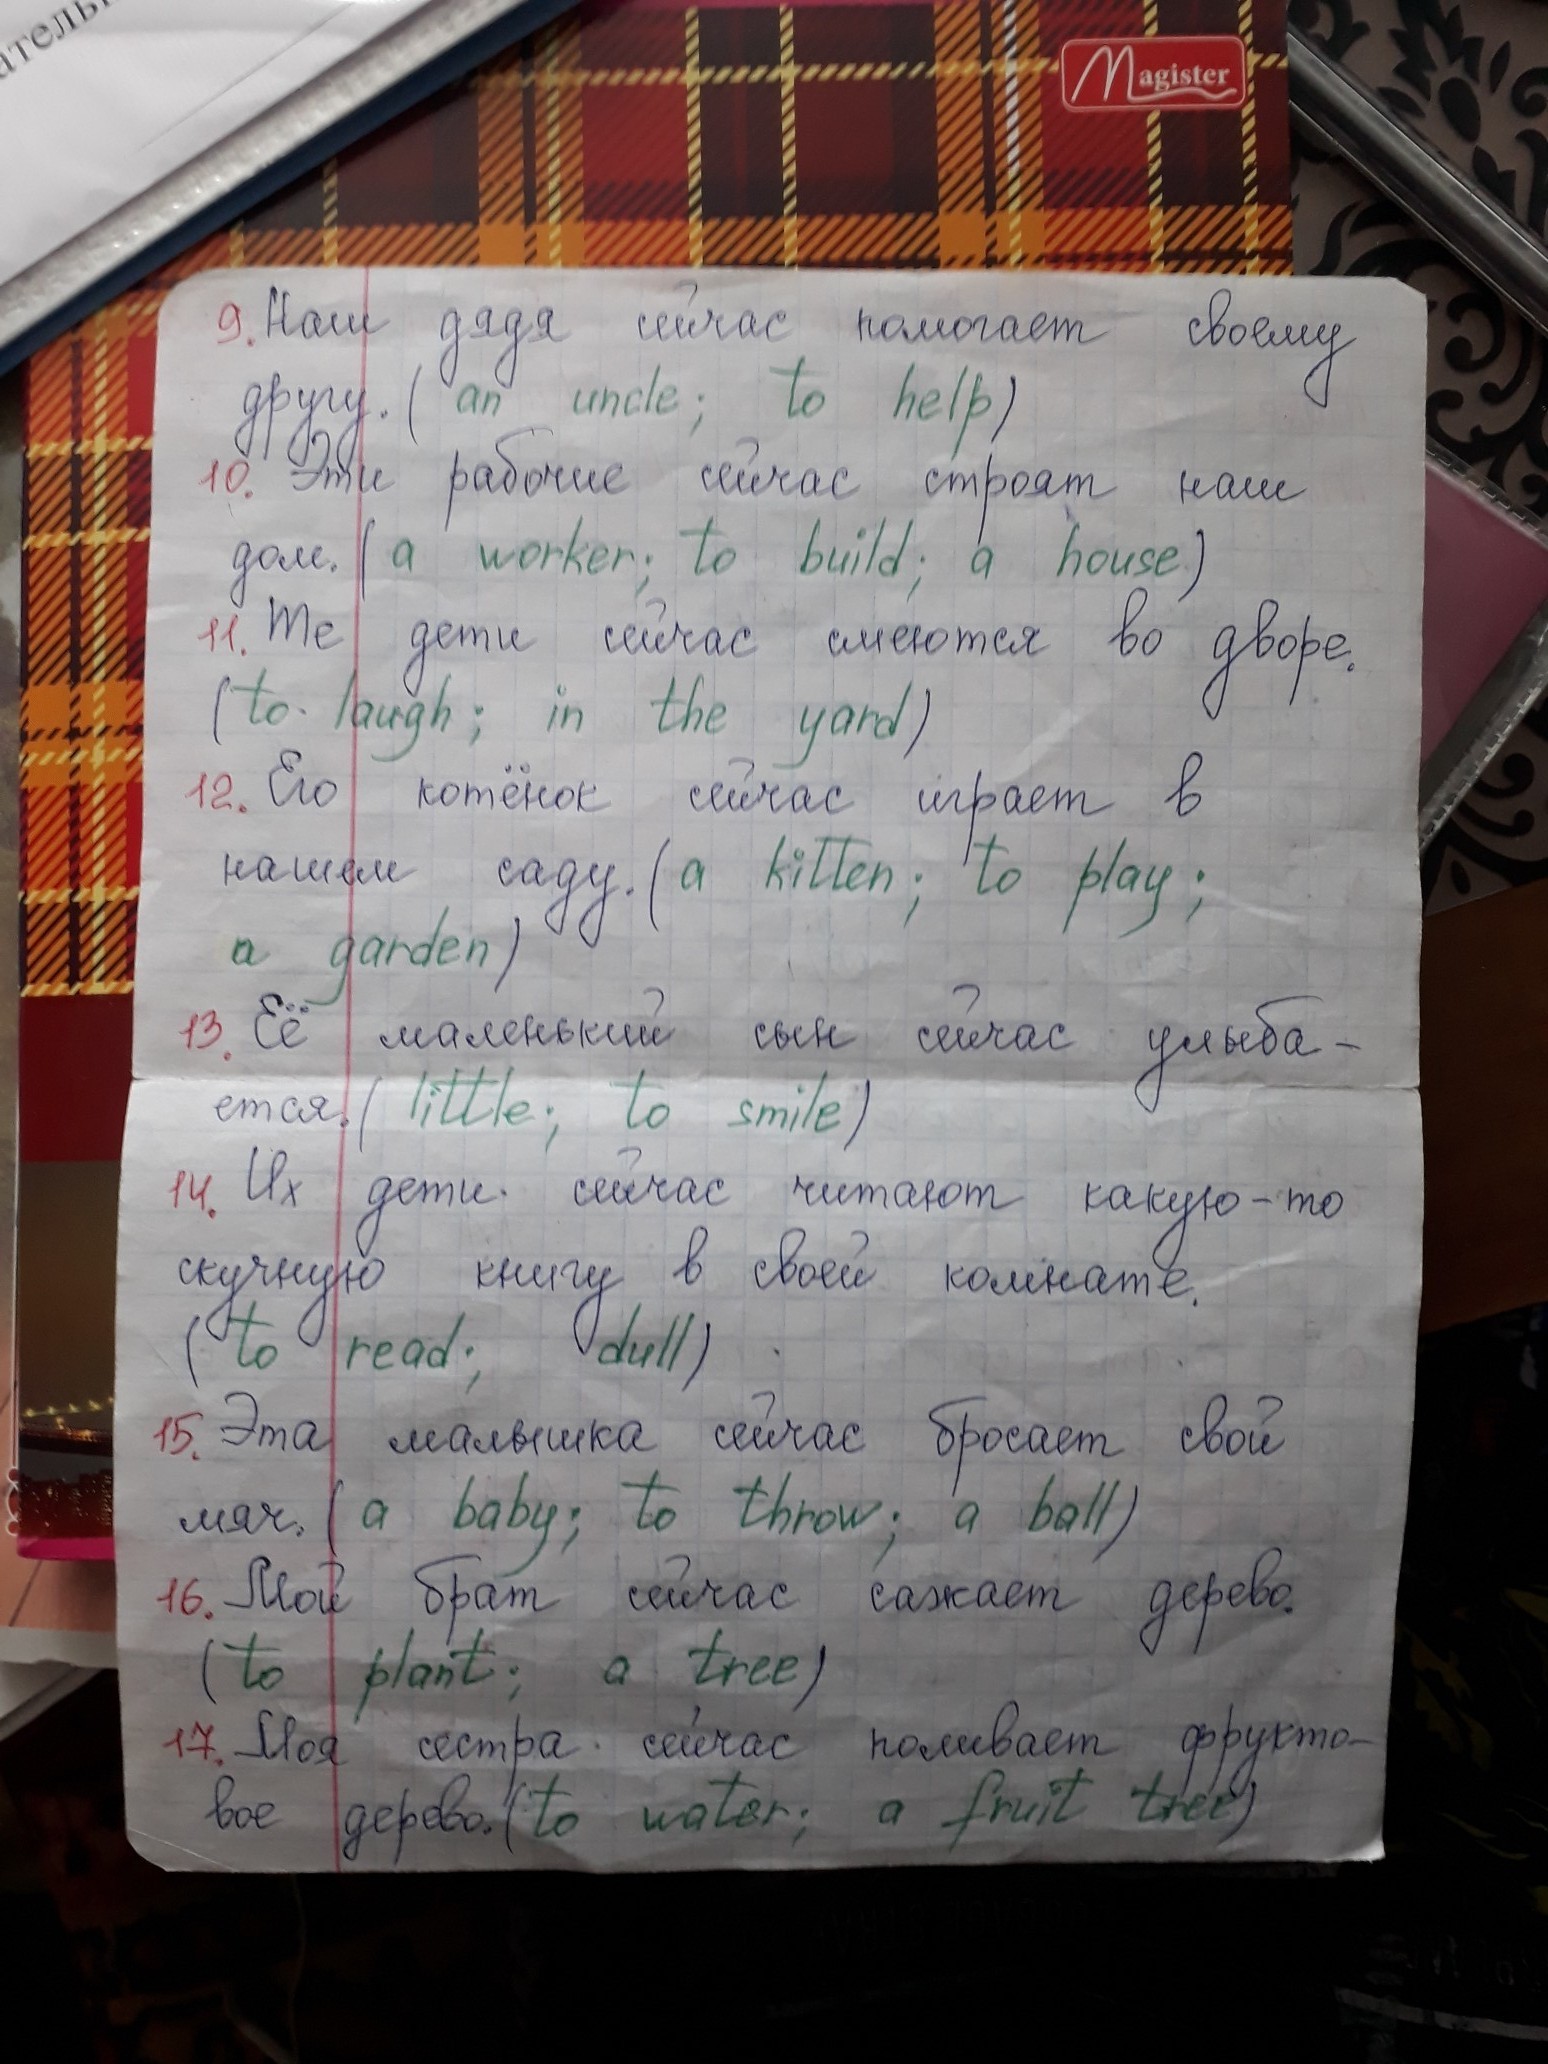 ательн
Magister
9. Наш дядя сейчас помогает своему
другу. (an uncle; to help)
10. Эти рабочие сейчас строят наш
дом. (a worker; to build; a house)
11. Те дети сейчас смеются во дворе.
(to laugh; in the yard)
12. Его котёнок сейчас играет в
нашем саду. (a kitten; to play;
a garden)
13. Её маленький сын сейчас улыба-
ется. (little; to smile)
14. Их дети сейчас читают какую-то
скучную книгу в своей комнате.
(to read; dull)
15. Эта малышка сейчас бросает свой
мяч. (a baby; to throw; a ball)
16. Мой брат сейчас сажает дерево.
(to plant; a tree)
17. Моя сестра сейчас поливает фрукто-
вое дерево. (to water; a fruit tree)